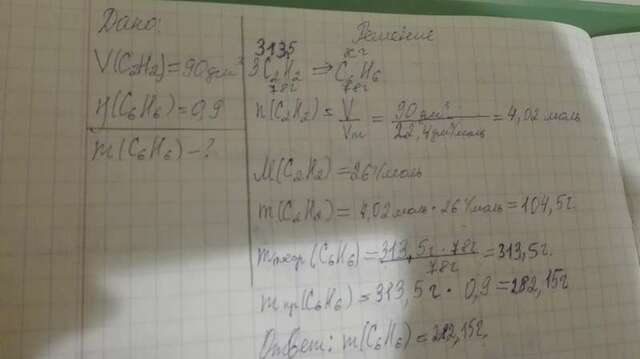 Дано:
V(C₂H₂)=90дм³
η(C₆H₆)=0,9
m(C₆H₆)-?
Решение
3135 xг
3C₂H₂ ⇒ C₆H₆
78г 78г
n(C₂H₂) = V/Vm = 90 дм³/22,4 дм³/моль = 4,02 моль
M(C₂H₂)=26г/моль
m(C₂H₂)= 4,02моль·26г/моль=104,5г.
mтеор(C₆H₆)=313,5г·78г/78г=313,5г.
mпр(C₆H₆)=313,5г·0,9=282,15г
Ответ: m(C₆H₆)=282,15г.